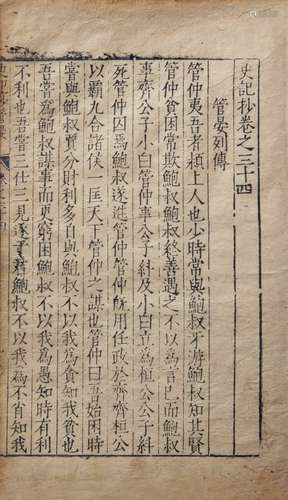 史記抄卷之三十四
管晏列傳
管仲夷吾者潁上人也少時常與鮑叔牙游鮑叔知其賢
管仲貧困常欺鮑叔鮑叔終善遇之不以為言已而鮑叔
事齊公子小白管仲事公子糾及小白立為桓公公子糾
死管仲囚焉鮑叔遂進管仲管仲既用任政於齊齊桓公
以霸九合諸侯一匡天下管仲之謀也管仲曰吾始困時
嘗與鮑叔賈分財利多自與鮑叔不以我為貪知我貧也
吾嘗為鮑叔謀事而更窮困鮑叔不以我為愚知時有利
不利也吾嘗三仕三見逐於君鮑叔不以我為不肖知我